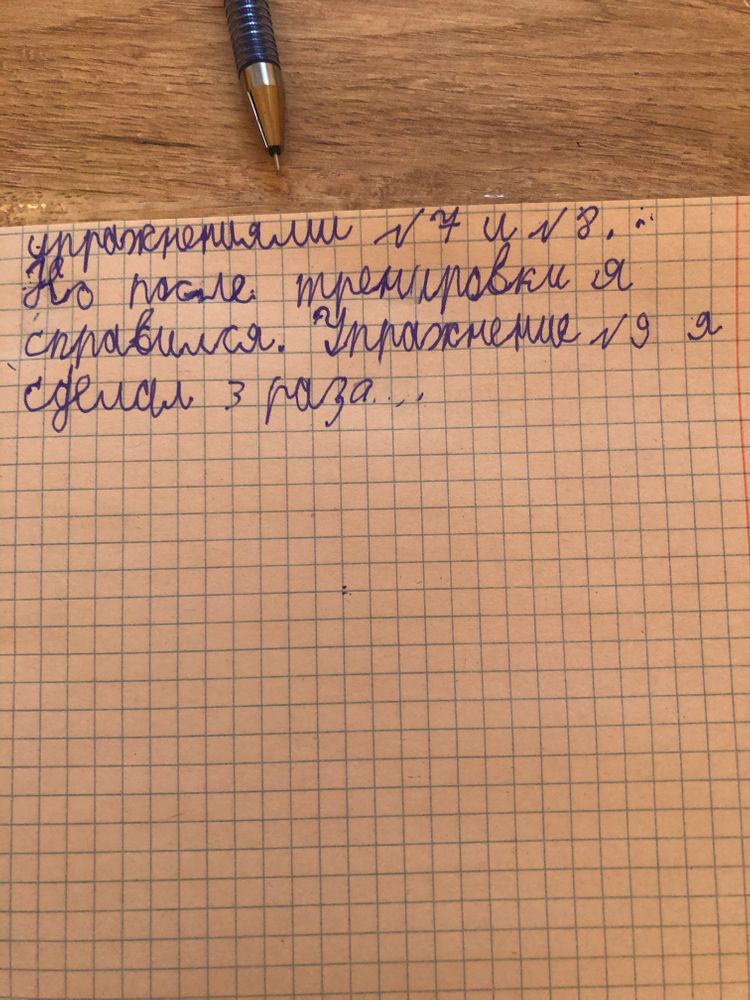 упражнениями №7 и №8.
Но после тренировки я
справился. Упражнение №9 я
сделал 3 раза...